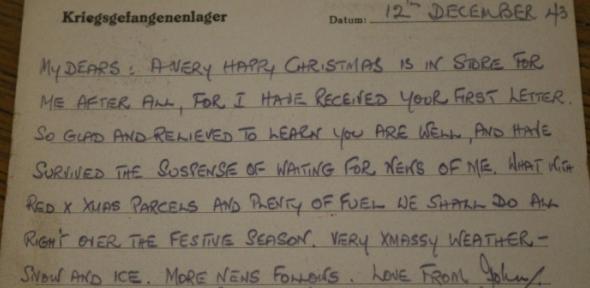 Kriegsgefangenenlager Datum: 12th DECEMBER 43
MY DEARS : A VERY HAPPY CHRISTMAS IS IN STORE FOR
ME AFTER ALL, FOR I HAVE RECEIVED YOUR FIRST LETTER.
SO GLAD AND RELIEVED TO LEARN YOU ARE WELL, AND HAVE
SURVIVED THE SUSPENSE OF WAITING FOR NEWS OF ME. WHAT WITH
RED X XMAS PARCELS AND PLENTY OF FUEL WE SHALL DO ALL
RIGHT OVER THE FESTIVE SEASON. VERY XMASSY WEATHER -
SNOW AND ICE. MORE NEWS FOLLOWS. LOVE FROM John.